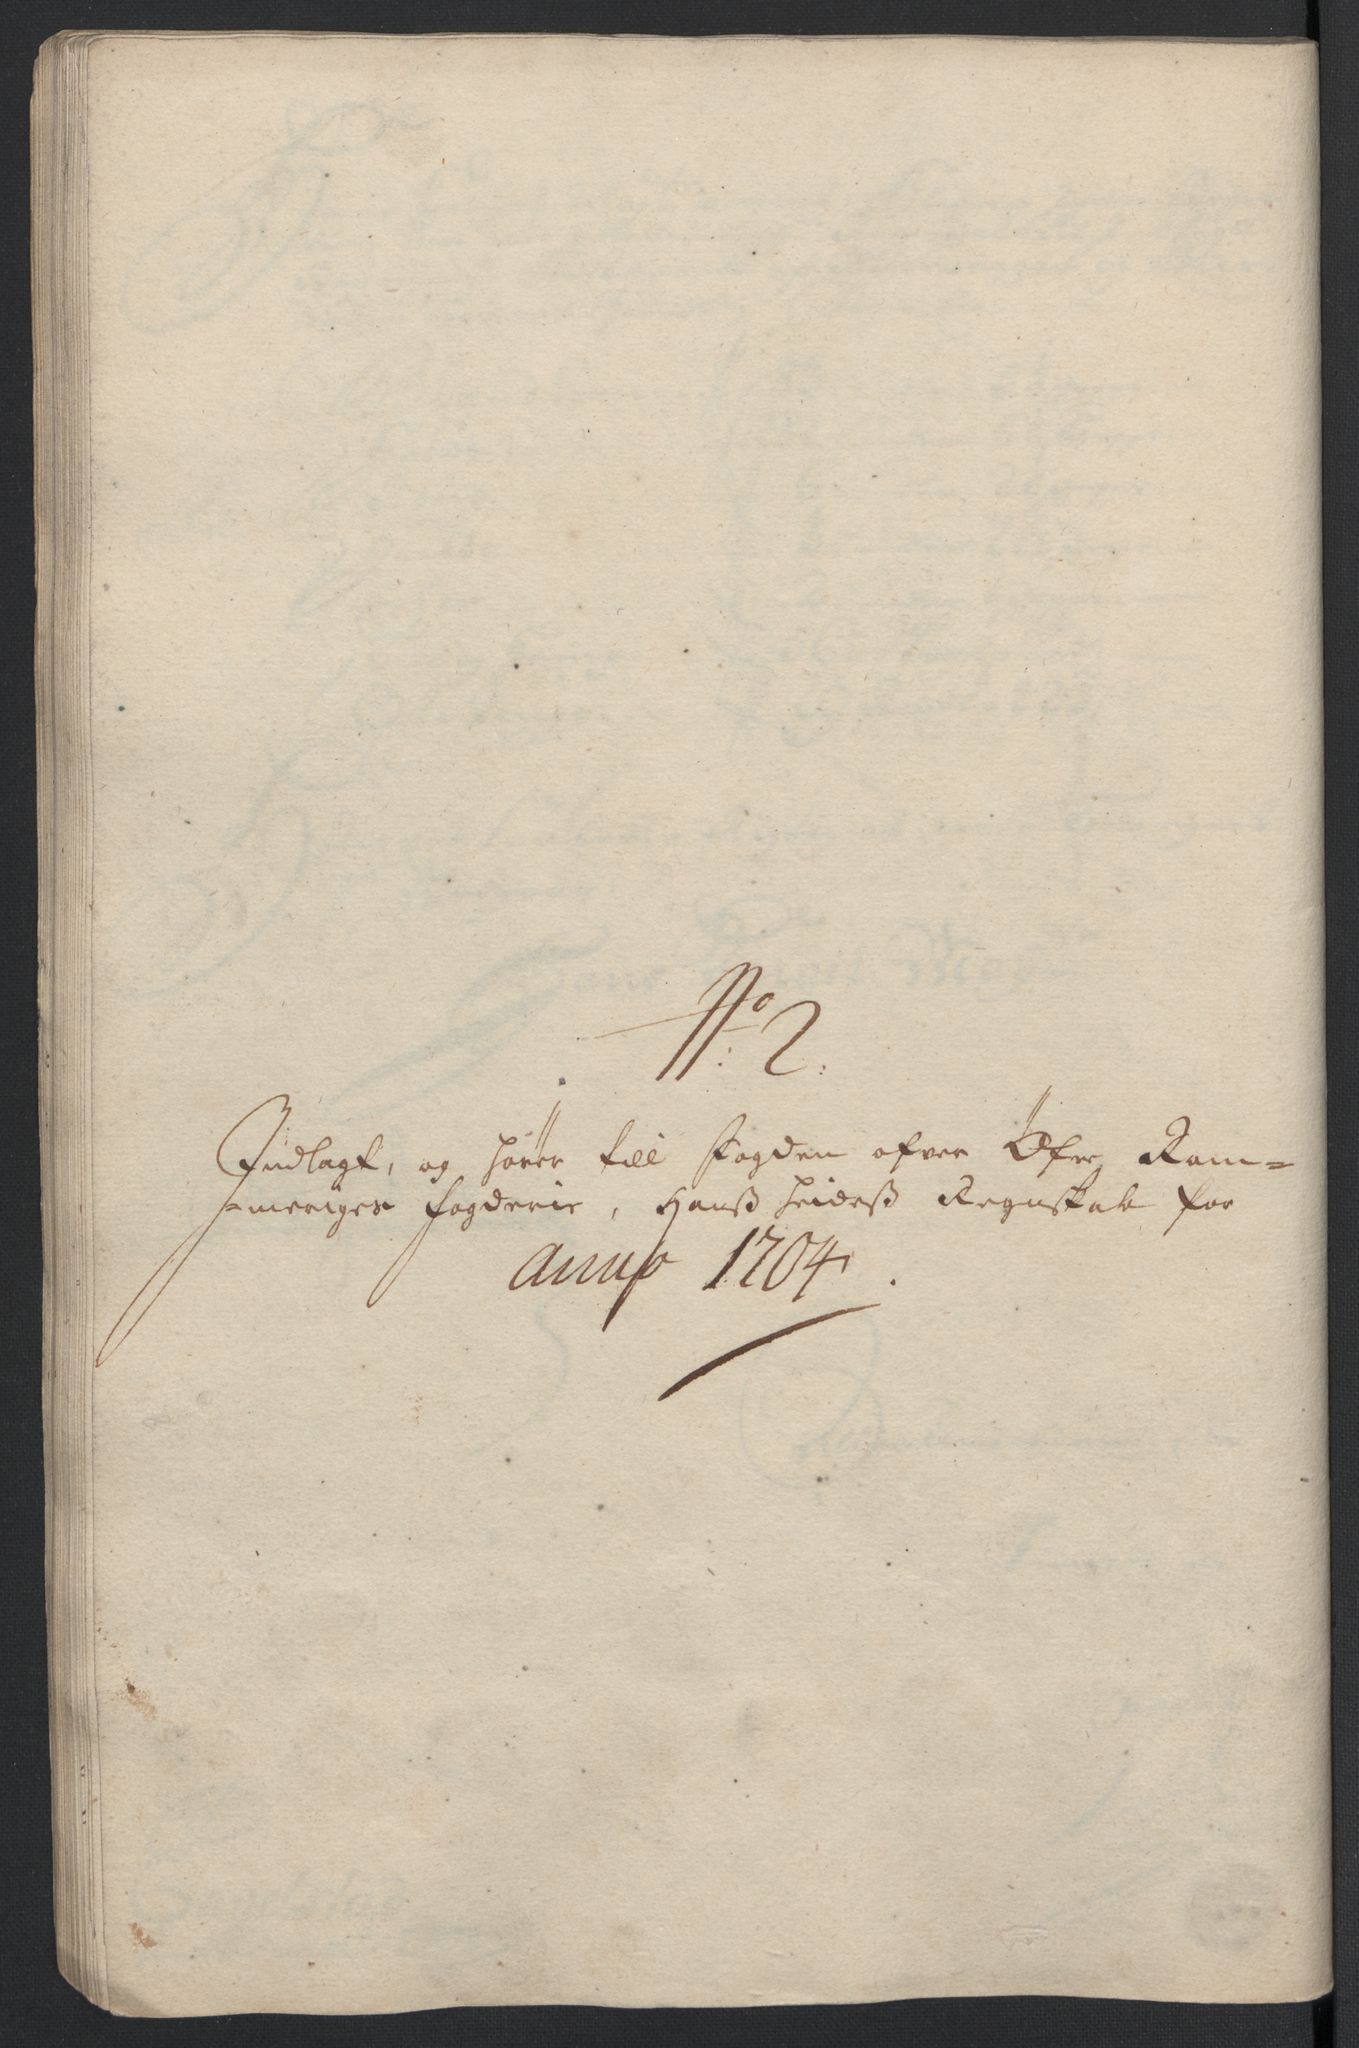 No: 2.
Indlagt, og hører till Fogden ofver Øfre Rom=
=meriges fogderie, Hanß Heideß Regnskab for
anno 1704.